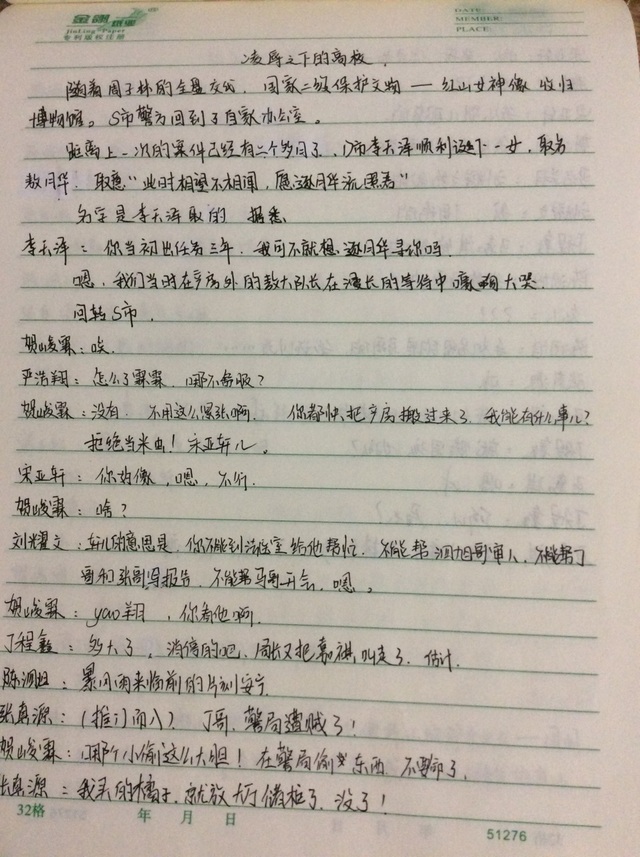 金俪纸业
JinLing-Paper
专利版权注册
DATE:
MEMBER:
PLACE:
凌辱之下的高校.
随着周子林的全盘交代,国家二级保护文物——红山女神像收归
博物馆。S市警方回到了自家办公室。
距离上一次的案件已经有二个多月了.D市李天泽顺利诞下一女,取名
敖月华.取意"此时相望不相闻,愿逐月华流照君"
名字是李天泽取的 据悉
李天泽:你当初出任务三年,我可不就想逐月华寻你吗.
嗯,我们当时在产房外的敖大队长在漫长的等待中嚎啕大哭.
回转S市.
贺峻霖:唉.
严浩翔:怎么了霖霖.哪不舒服?
贺峻霖:没有.不用这么紧张啊.你都快把产房搬过来了.我能有什么事儿?
拒绝当米虫!宋亚轩儿。
宋亚轩:你好像,嗯,不行.
贺峻霖:啥?
刘耀文:轩儿的意思是,你不能到法医室给他帮忙.不能帮泗旭哥审人,不能帮丁
哥和张哥写报告.不能帮马哥开会.嗯。
贺峻霖:yao翔,你看他啊.
丁程鑫:多大了。消停的吧.局长又把嘉祺叫走了.估计.
陈泗旭:暴风雨来临前的片刻安宁
张真源:(推门而入)丁哥.警局遭贼了!
贺峻霖:哪个小偷这么大胆!在警局偷东西.不要命了.
张真源:我买的橘子.就放大厅储柜了.没了!
32格
年 月 日
51276